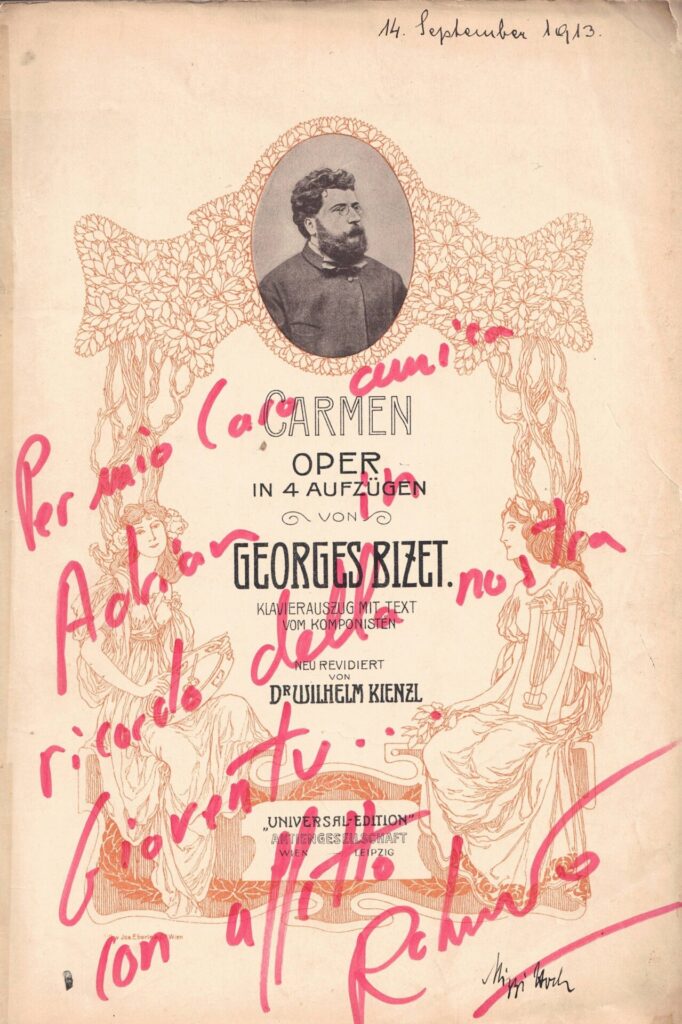 14. September 1913.
CARMEN
OPER
IN 4 AUFZÜGEN
VON
GEORGES BIZET.
KLAVIERAUSZUG MIT TEXT
VOM KOMPONISTEN
NEU REVIDIERT
VON
DR WILHELM KIENZL
"UNIVERSAL-EDITION"
AKTIENGESELLSCHAFT
WIEN LEIPZIG
Jos. Eberle Wien
Per mio Caro amico
Adrian in
ricordo della nostra
Gioventu...
con affetto
Mizzi Koch